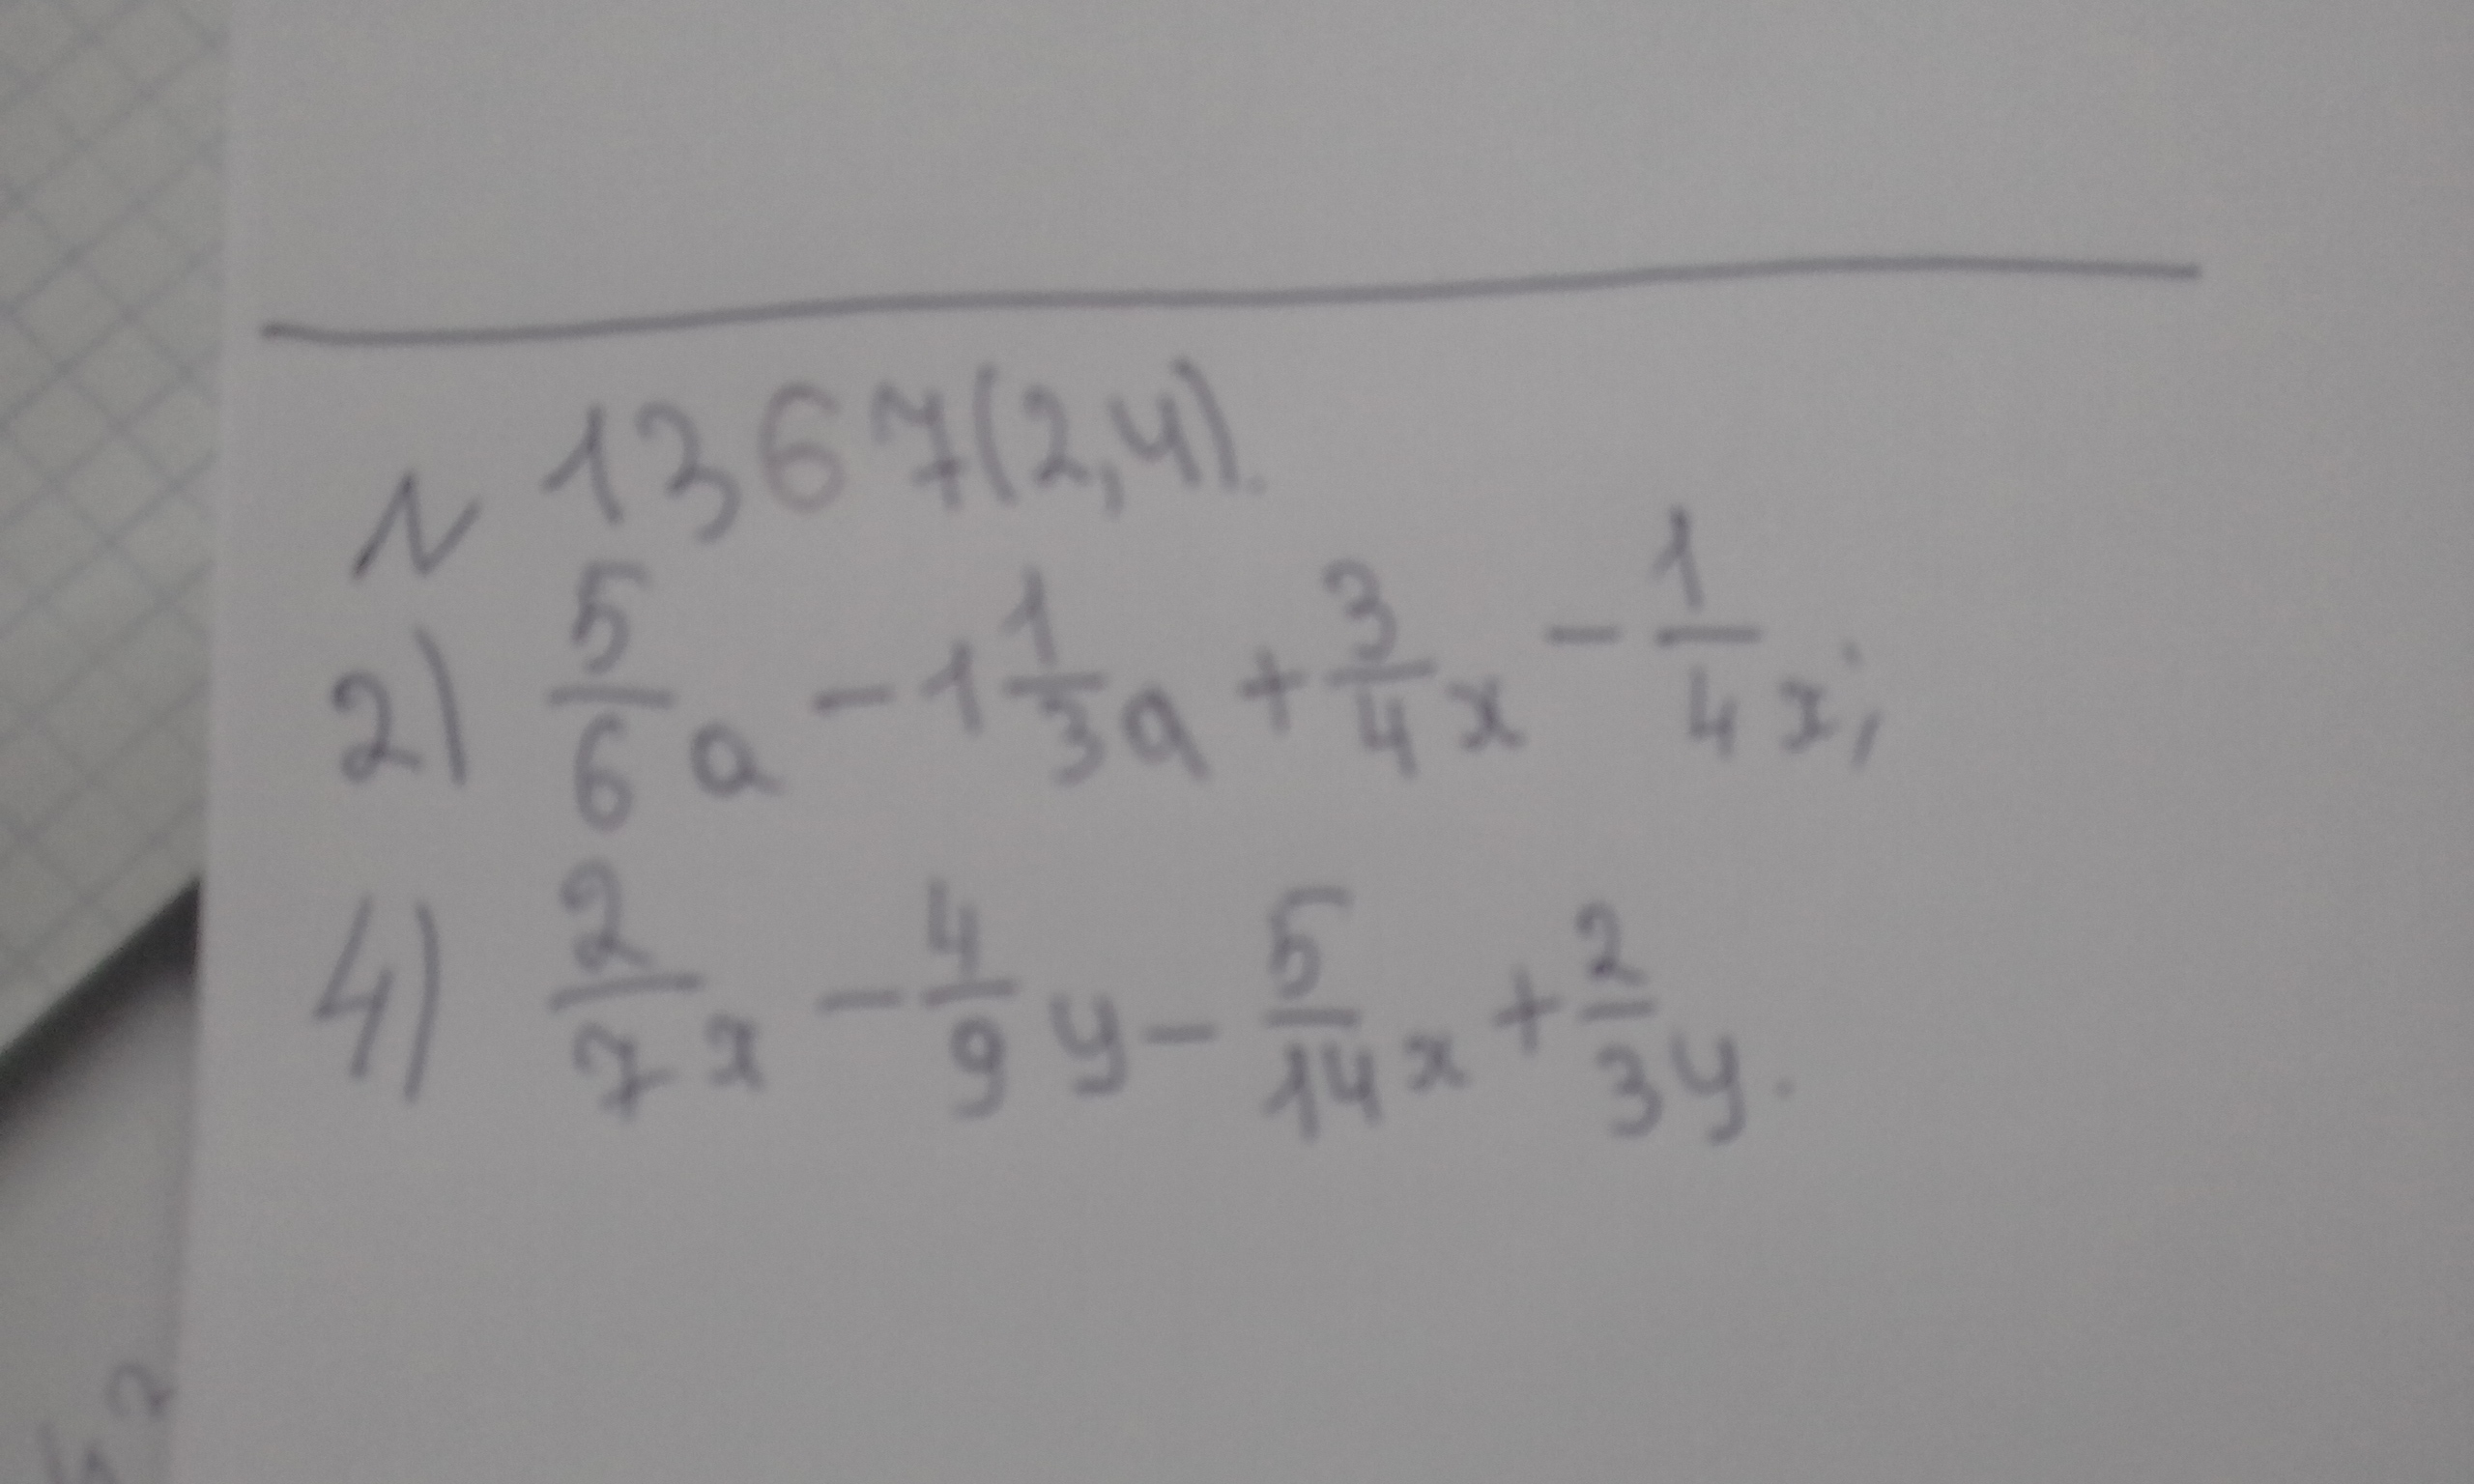 N 1367(2,4).
2) 5/6 a - 1 1/3 a + 3/4 x - 1/4 x;
4) 2/7 x - 4/9 y - 5/14 x + 2/3 y.